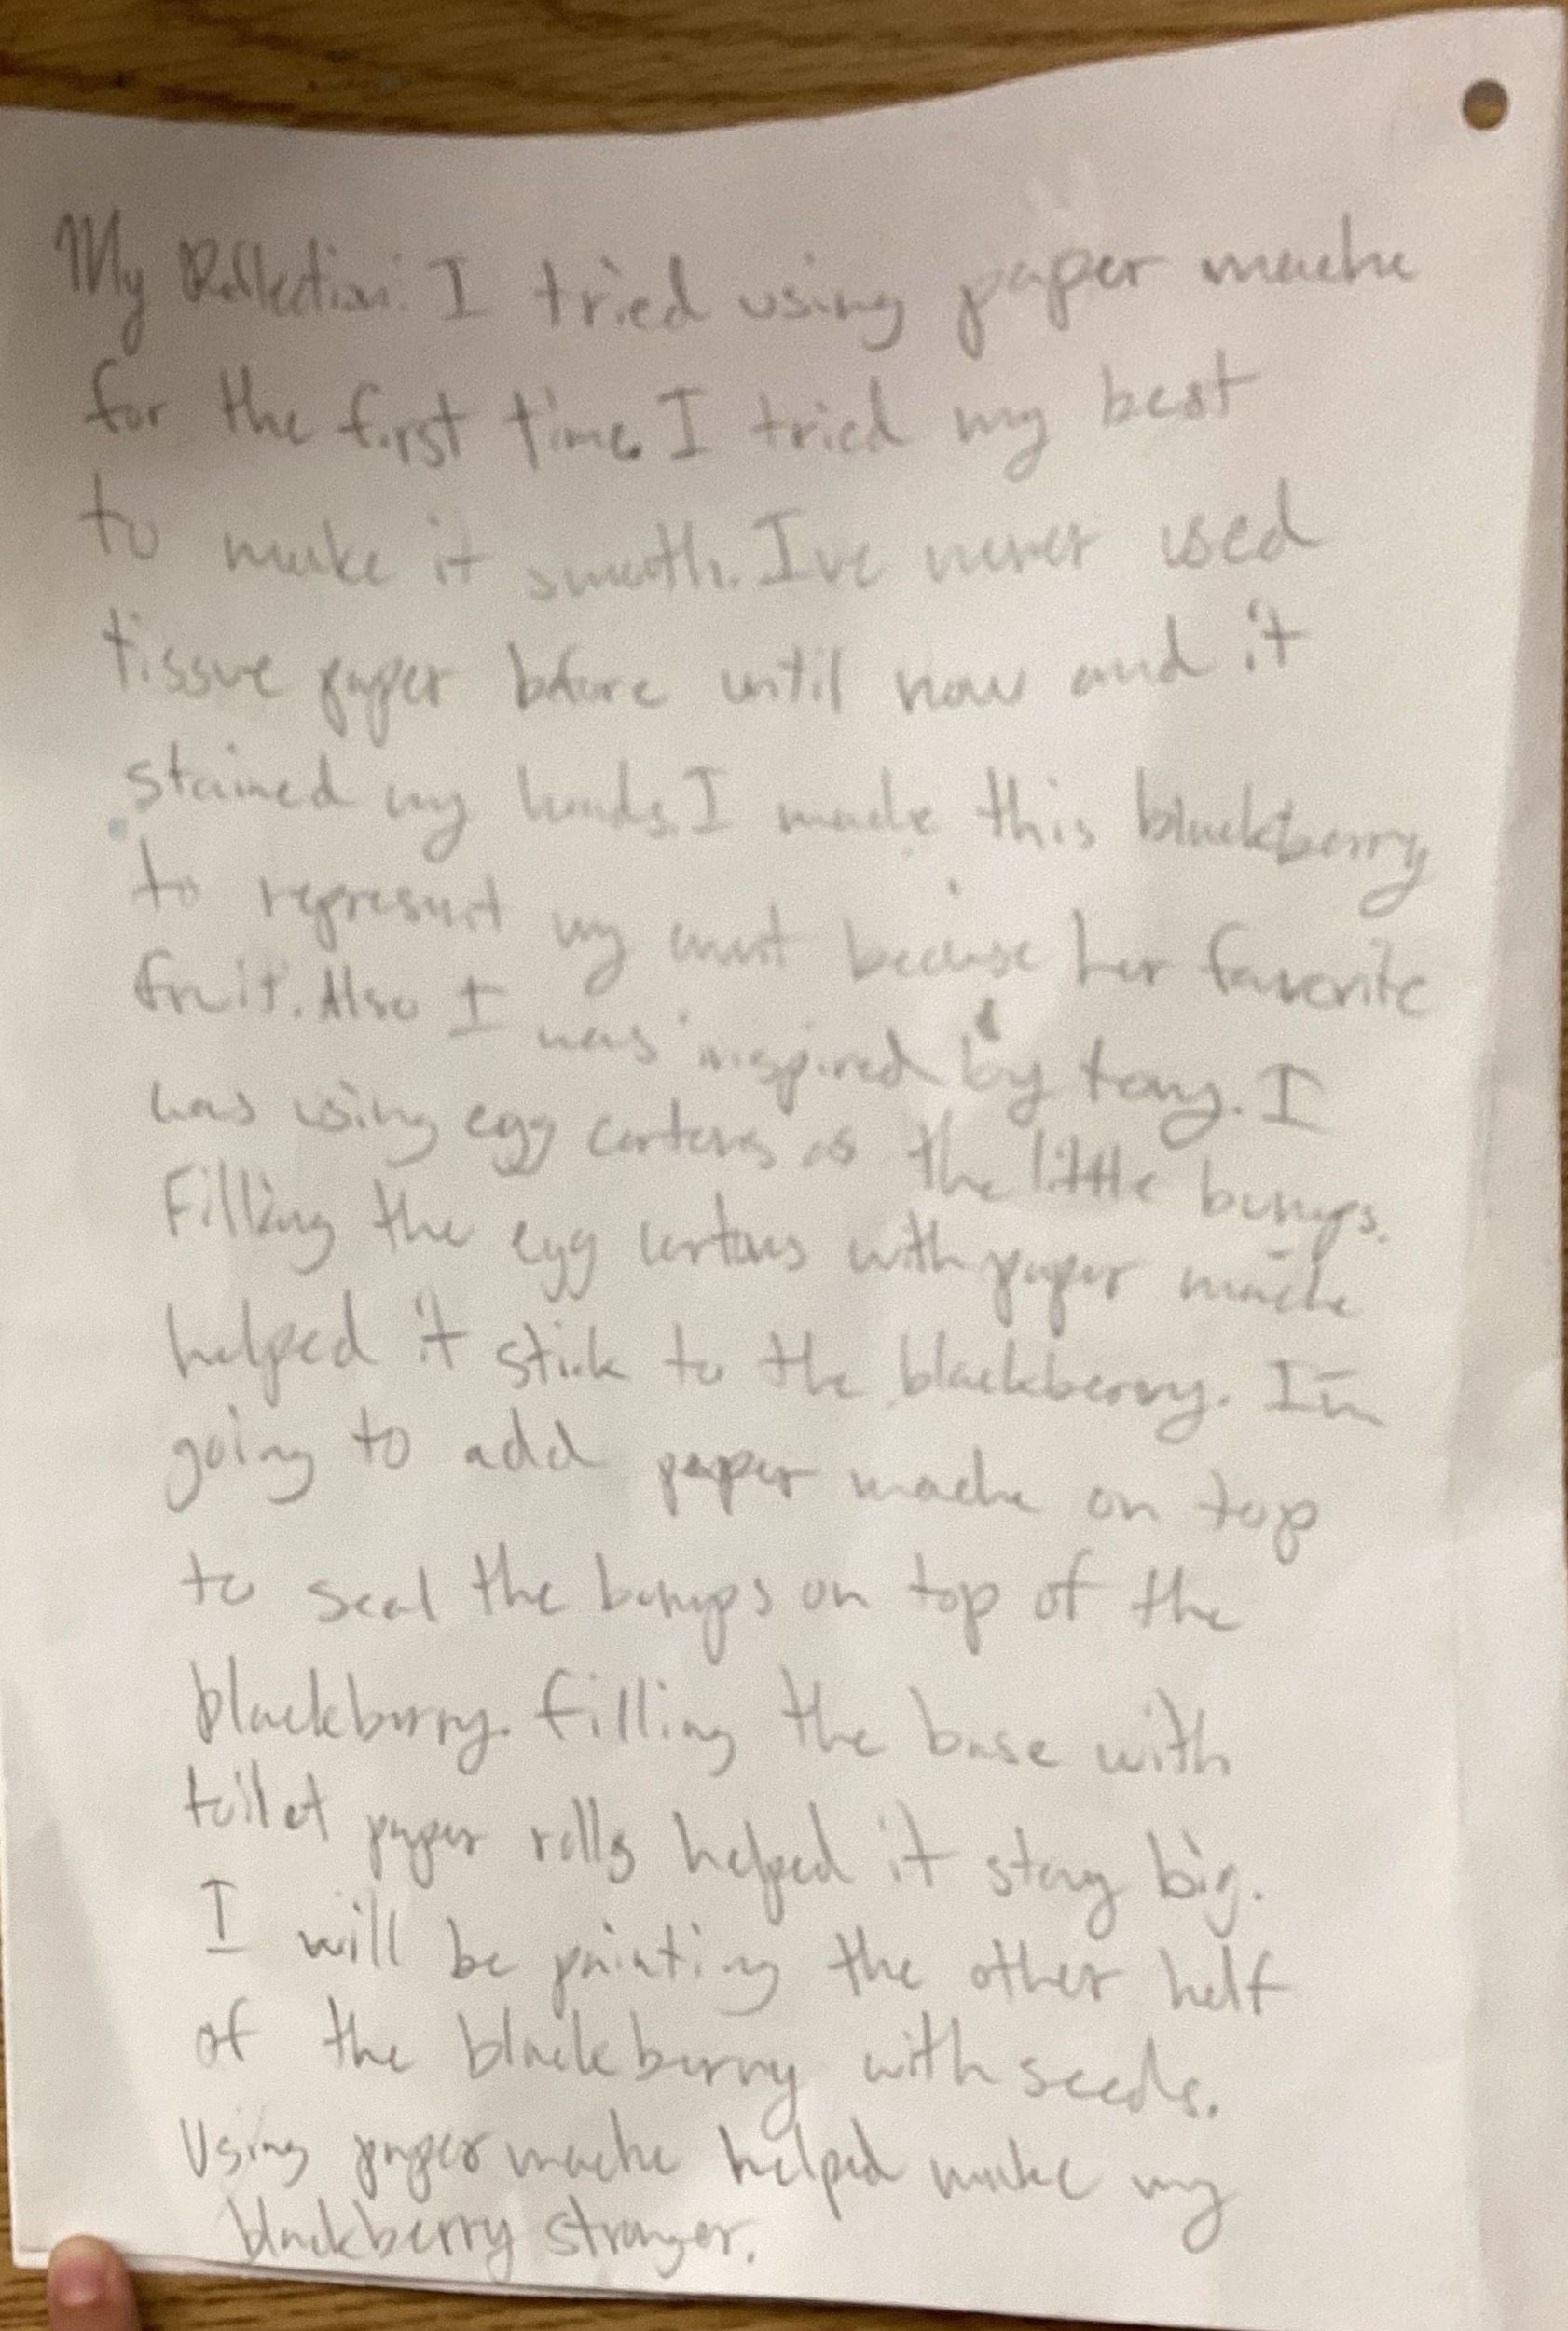 My Reflection: I tried using paper mache
for the first time. I tried my best
to make it smooth. Ive never used
tissue paper before until now and it
stained my hands. I made this blackberry
to represent my aunt because her favorite
fruit. Also I was inspired by tony. I
was using egg cartons as the little bumps.
Filling the egg cartons with paper mache
helped it stick to the blackberry. Im
going to add paper mache on top
to seal the bumps on top of the
blackberry. filling the base with
toilet paper rolls helped it stay big.
I will be painting the other half
of the blackberry with seeds.
Using paper mache helped make my
blackberry stronger.